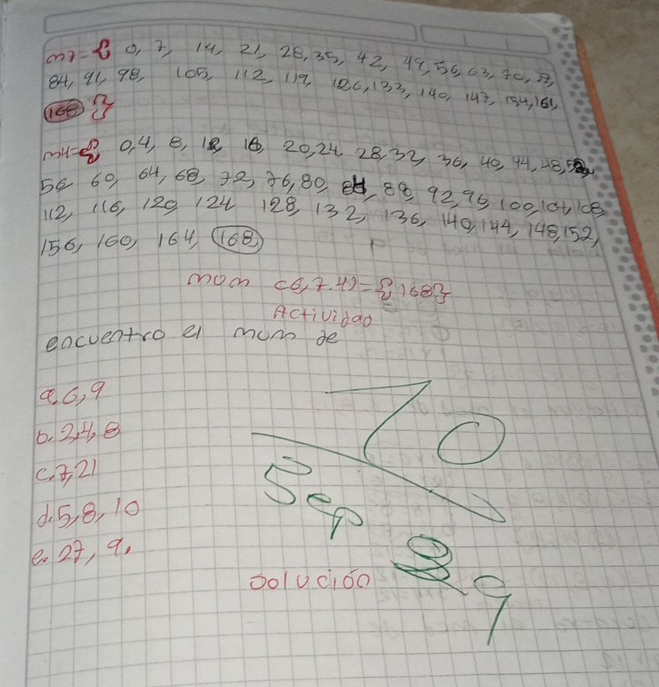 m7={ 0, 7, 14, 21, 28, 35, 42, 49, 56, 63, 70, 77,
84, 91, 98, 105, 112, 119, 126, 133, 140, 147, 154, 161,
168 }
m4={ 0, 4, 8, 12, 16, 20, 24, 28, 32, 36, 40, 44, 48, 52,
56 60, 64, 68, 72, 76, 80, 84, 88, 92, 96, 100, 104, 108,
112, 116, 120, 124 128, 132, 136, 140, 144, 148, 152,
156, 160, 164, 168
mcm c(6,7,4)={168}
Actividad
encuentro el mcm de
a, 6, 9
b. 2, 4, 8
c. 7, 21
d. 5, 8, 10
e. 27, 9,
10
Sep 9
solución